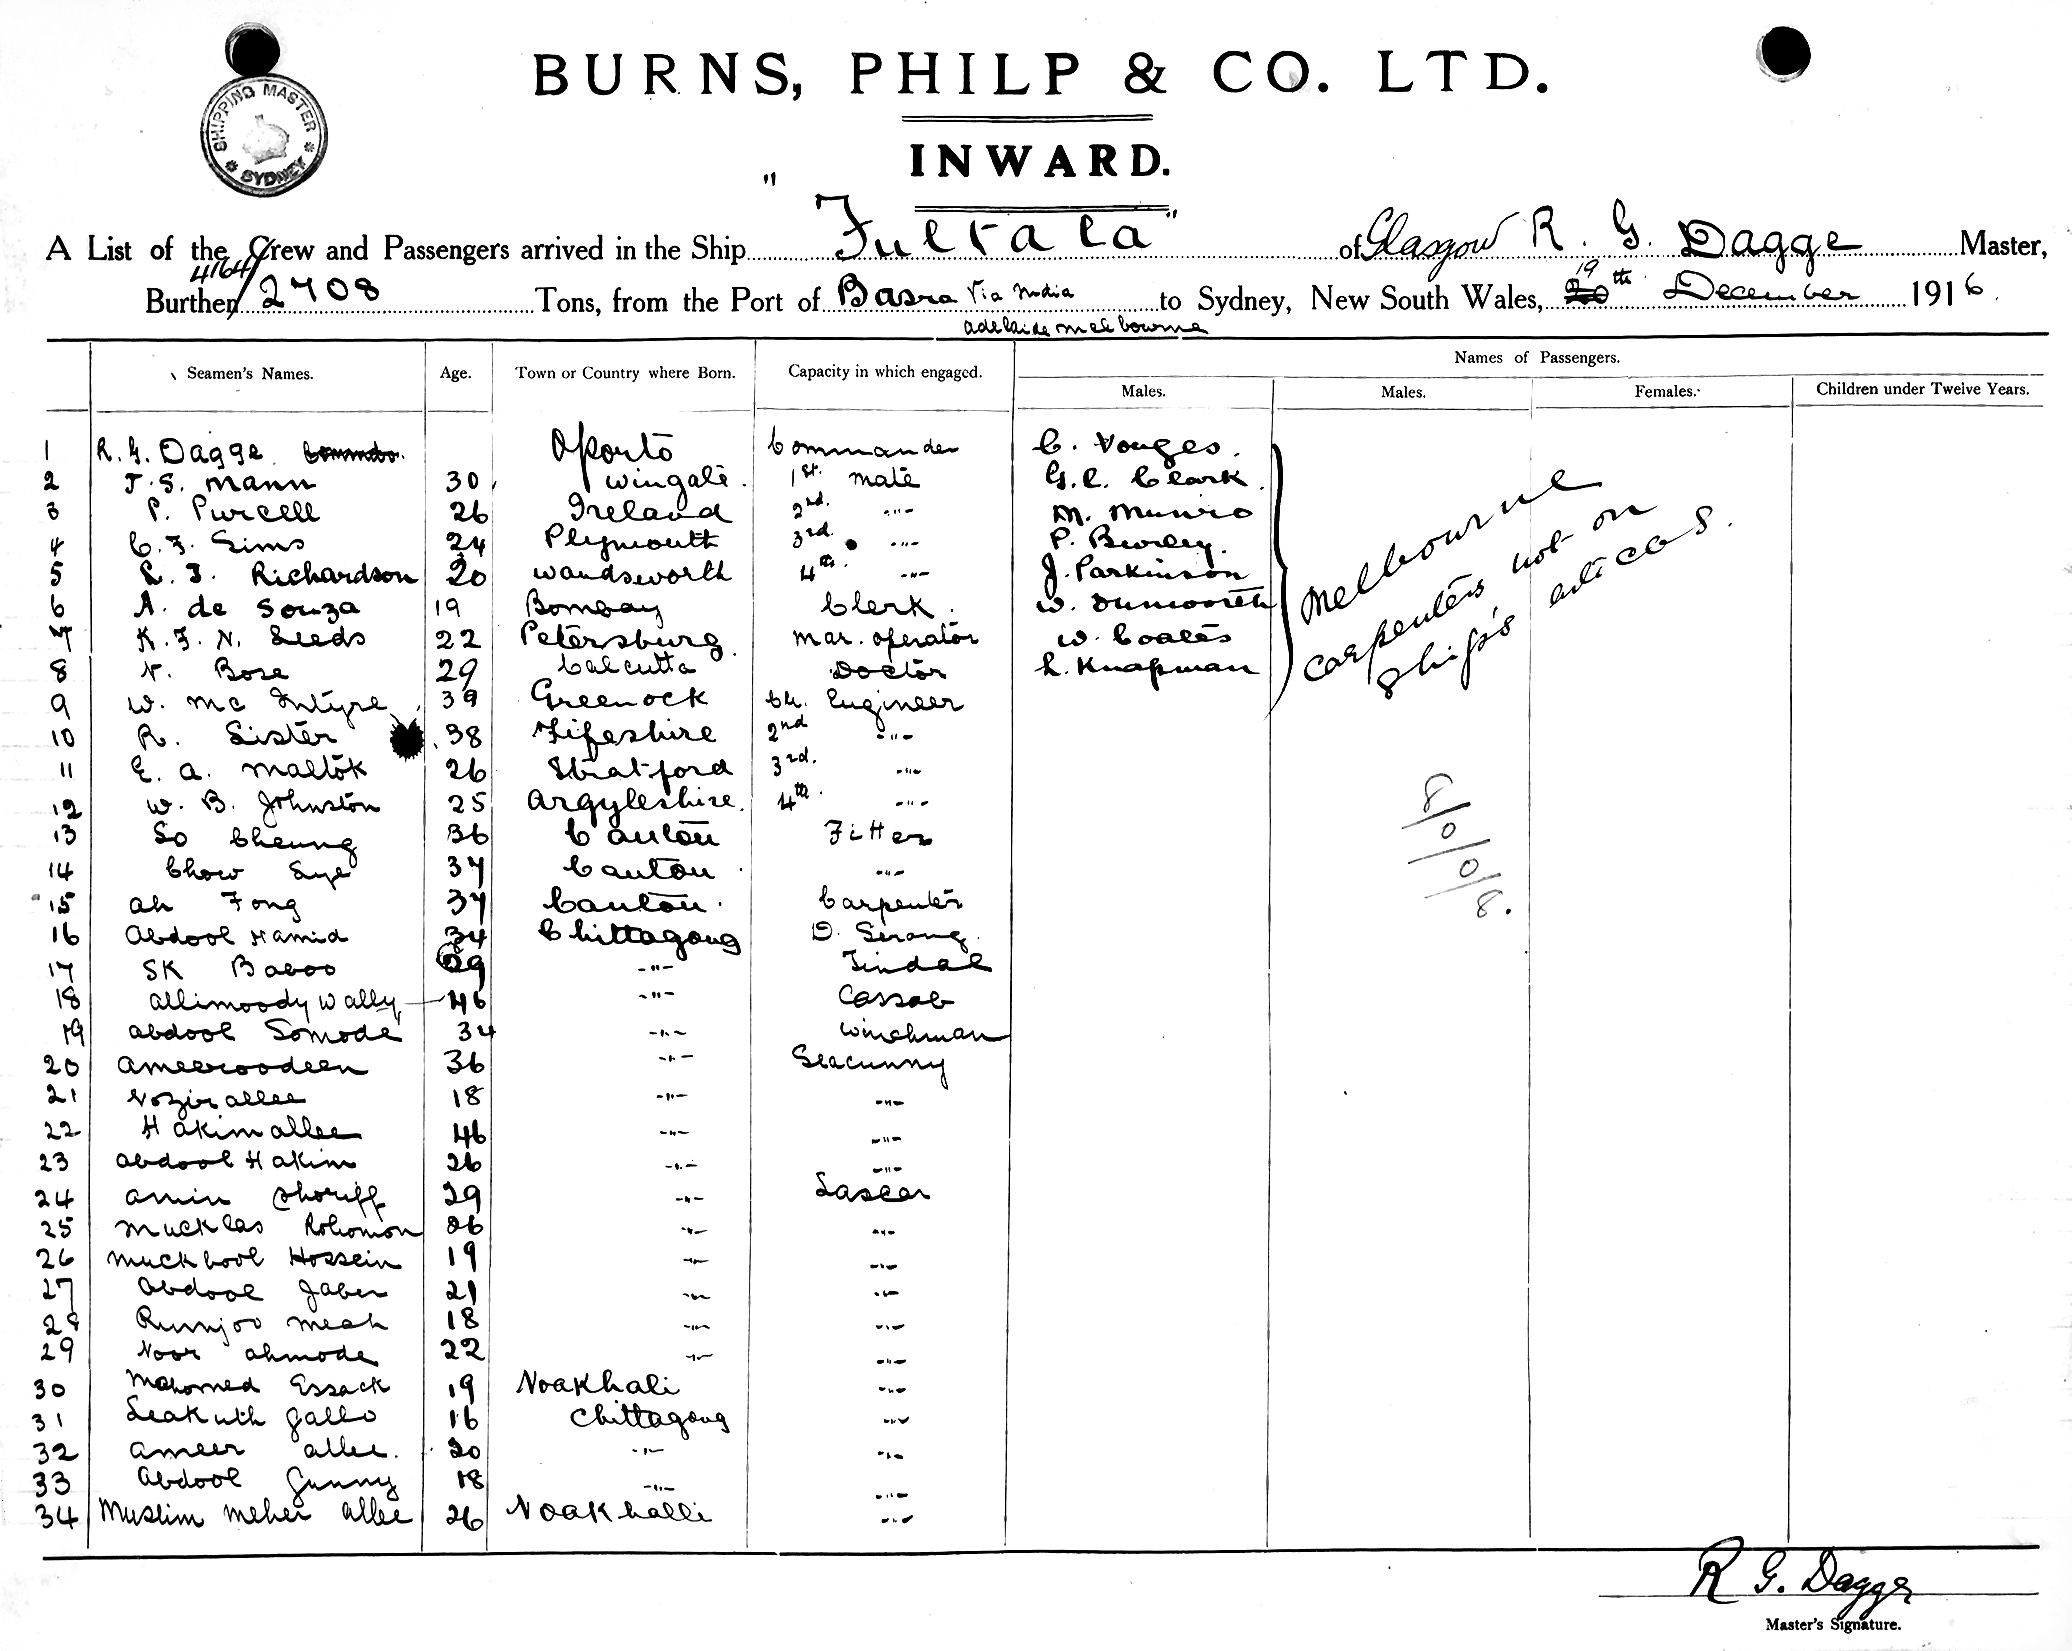 SHIPPING MASTER
* SYDNEY *
BURNS, PHILP & CO. LTD.
INWARD.
A List of the Crew and Passengers arrived in the Ship "Fultala" of Glasgow R. G. Dagge Master,
Burthen 4164/2708 Tons, from the Port of Basra Via India to Sydney, New South Wales, 19th December 1916.
adelaide melbourne
Names of Passengers.
Seamen's Names. Age. Town or Country where Born. Capacity in which engaged. Males. Males. Females. Children under Twelve Years.
1 R. G. Dagge Oporto Commander C. Vouges.
2 J. S. Mann 30 Wingate. 1st. mate G. C. Clark.
3 P. Purcell 26 Ireland 2nd. -"- M. Munro
4 C. F. Sims 24 Plymouth 3rd. -"- P. Burley.
5 L. J. Richardson 20 Wandsworth 4th. -"- J. Parkinson
6 A. de Souza 19 Bombay Clerk. W. Dunworth
7 K. F. N. Leeds 22 Petersburg. Mar. operator W. Coates
8 N. Bose 29 Calcutta Doctor L. Knapman
Melbourne
carpenters not on
ship's articles.
9 W. Mc Intyre 39 Greenock Ch. Engineer
10 R. Lister 38 Fifeshire 2nd -"-
11 E. A. Mattok 26 Stratford 3rd. -"-
12 W. B. Johnston 25 Argyleshire. 4th. -"-
13 So Cheung 36 Canton Fitter
14 Chow Sye 37 Canton -"-
15 Ah Fong 37 Canton. Carpenter
8/0/0/8.
16 Abdool Hamid 34 Chittagong D. Serang.
17 SK Baboo 29 -"- Tindal
18 Allimoody Wally 46 -"- Cassab
19 Abdool Somode 34 -"- Winchman
20 Ameeroodeen 36 -"- Seacunny
21 Nozirallee 18 -"- -"-
22 Hakimallee 46 -"- -"-
23 Abdool Hakim 26 -"- -"-
24 Amin Shoriff 29 -"- Lascar
25 Mucklas Rohomon 26 -"- -"-
26 Muckbool Hossein 19 -"- -"-
27 Abdool Jaber 21 -"- -"-
28 Rumjoo Meah 18 -"- -"-
29 Noor Ahmode 22 -"- -"-
30 Mahomed Essack 19 Noakhali -"-
31 Leakuth Gallo 16 Chittagong -"-
32 Ameer Allee. 20 -"- -"-
33 Abdool Gunny 18 -"- -"-
34 Muslim Meher Allee 26 Noakhalli -"-
R G. Dagge
Master's Signature.